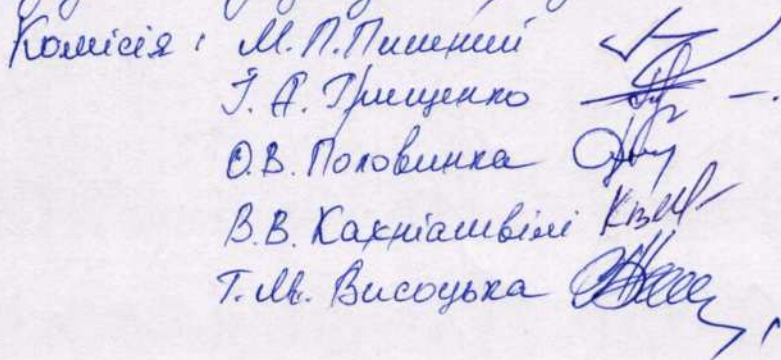 Комісія: М.П. Пишний
І.А. Грищенко
О.В. Половинка
В.В. Кахніашвілі
Т.М. Висоцька